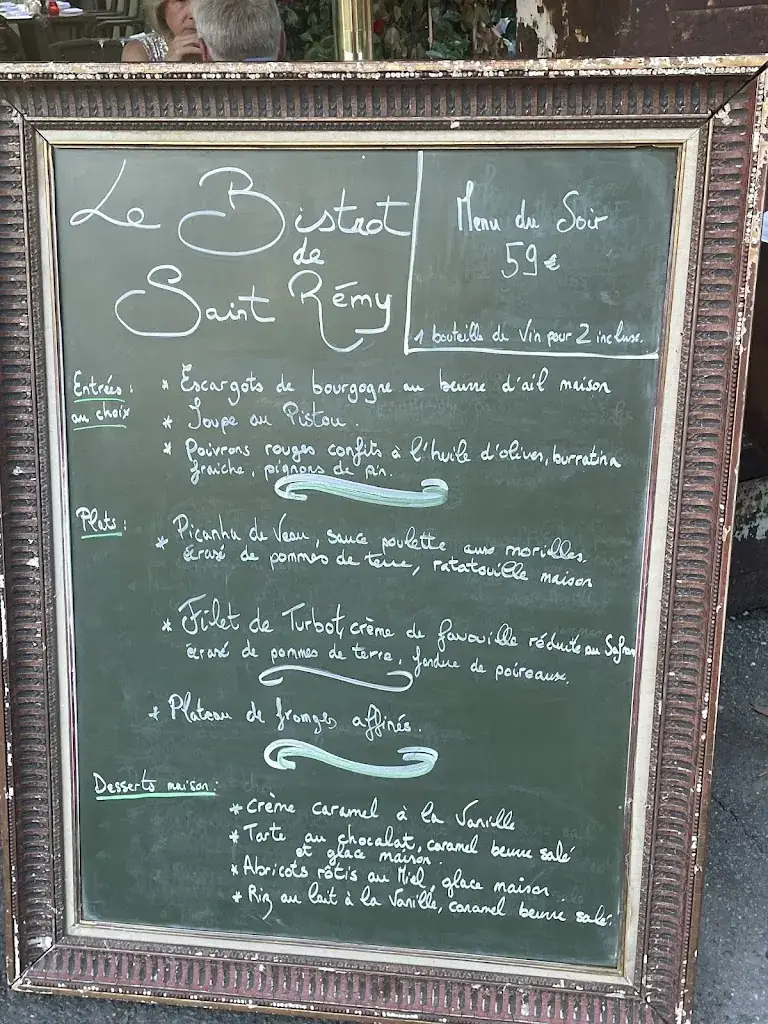 Le Bistrot
de
Saint Rémy
Menu du Soir
59€
1 bouteille de Vin pour 2 incluse.
Entrées :
au choix
* Escargots de bourgogne au beurre d'ail maison
* Soupe au Pistou.
* Poivrons rouges confits à l'huile d'olives, burratina
fraiche, pignons de pin.
Plats :
* Picanha de Veau, sauce poulette aux morilles.
écrasé de pommes de terre, ratatouille maison
* Filet de Turbot, crème de favouille réduite au Safran
écrasé de pommes de terre, fondue de poireaux.
* Plateau de fromages affinés.
Desserts maison :
* Crème caramel à la Vanille
* Tarte au chocolat, caramel beurre salé
et glace maison.
* Abricots rôtis au Miel, glace maison
* Riz au lait à la Vanille, caramel beurre salé.